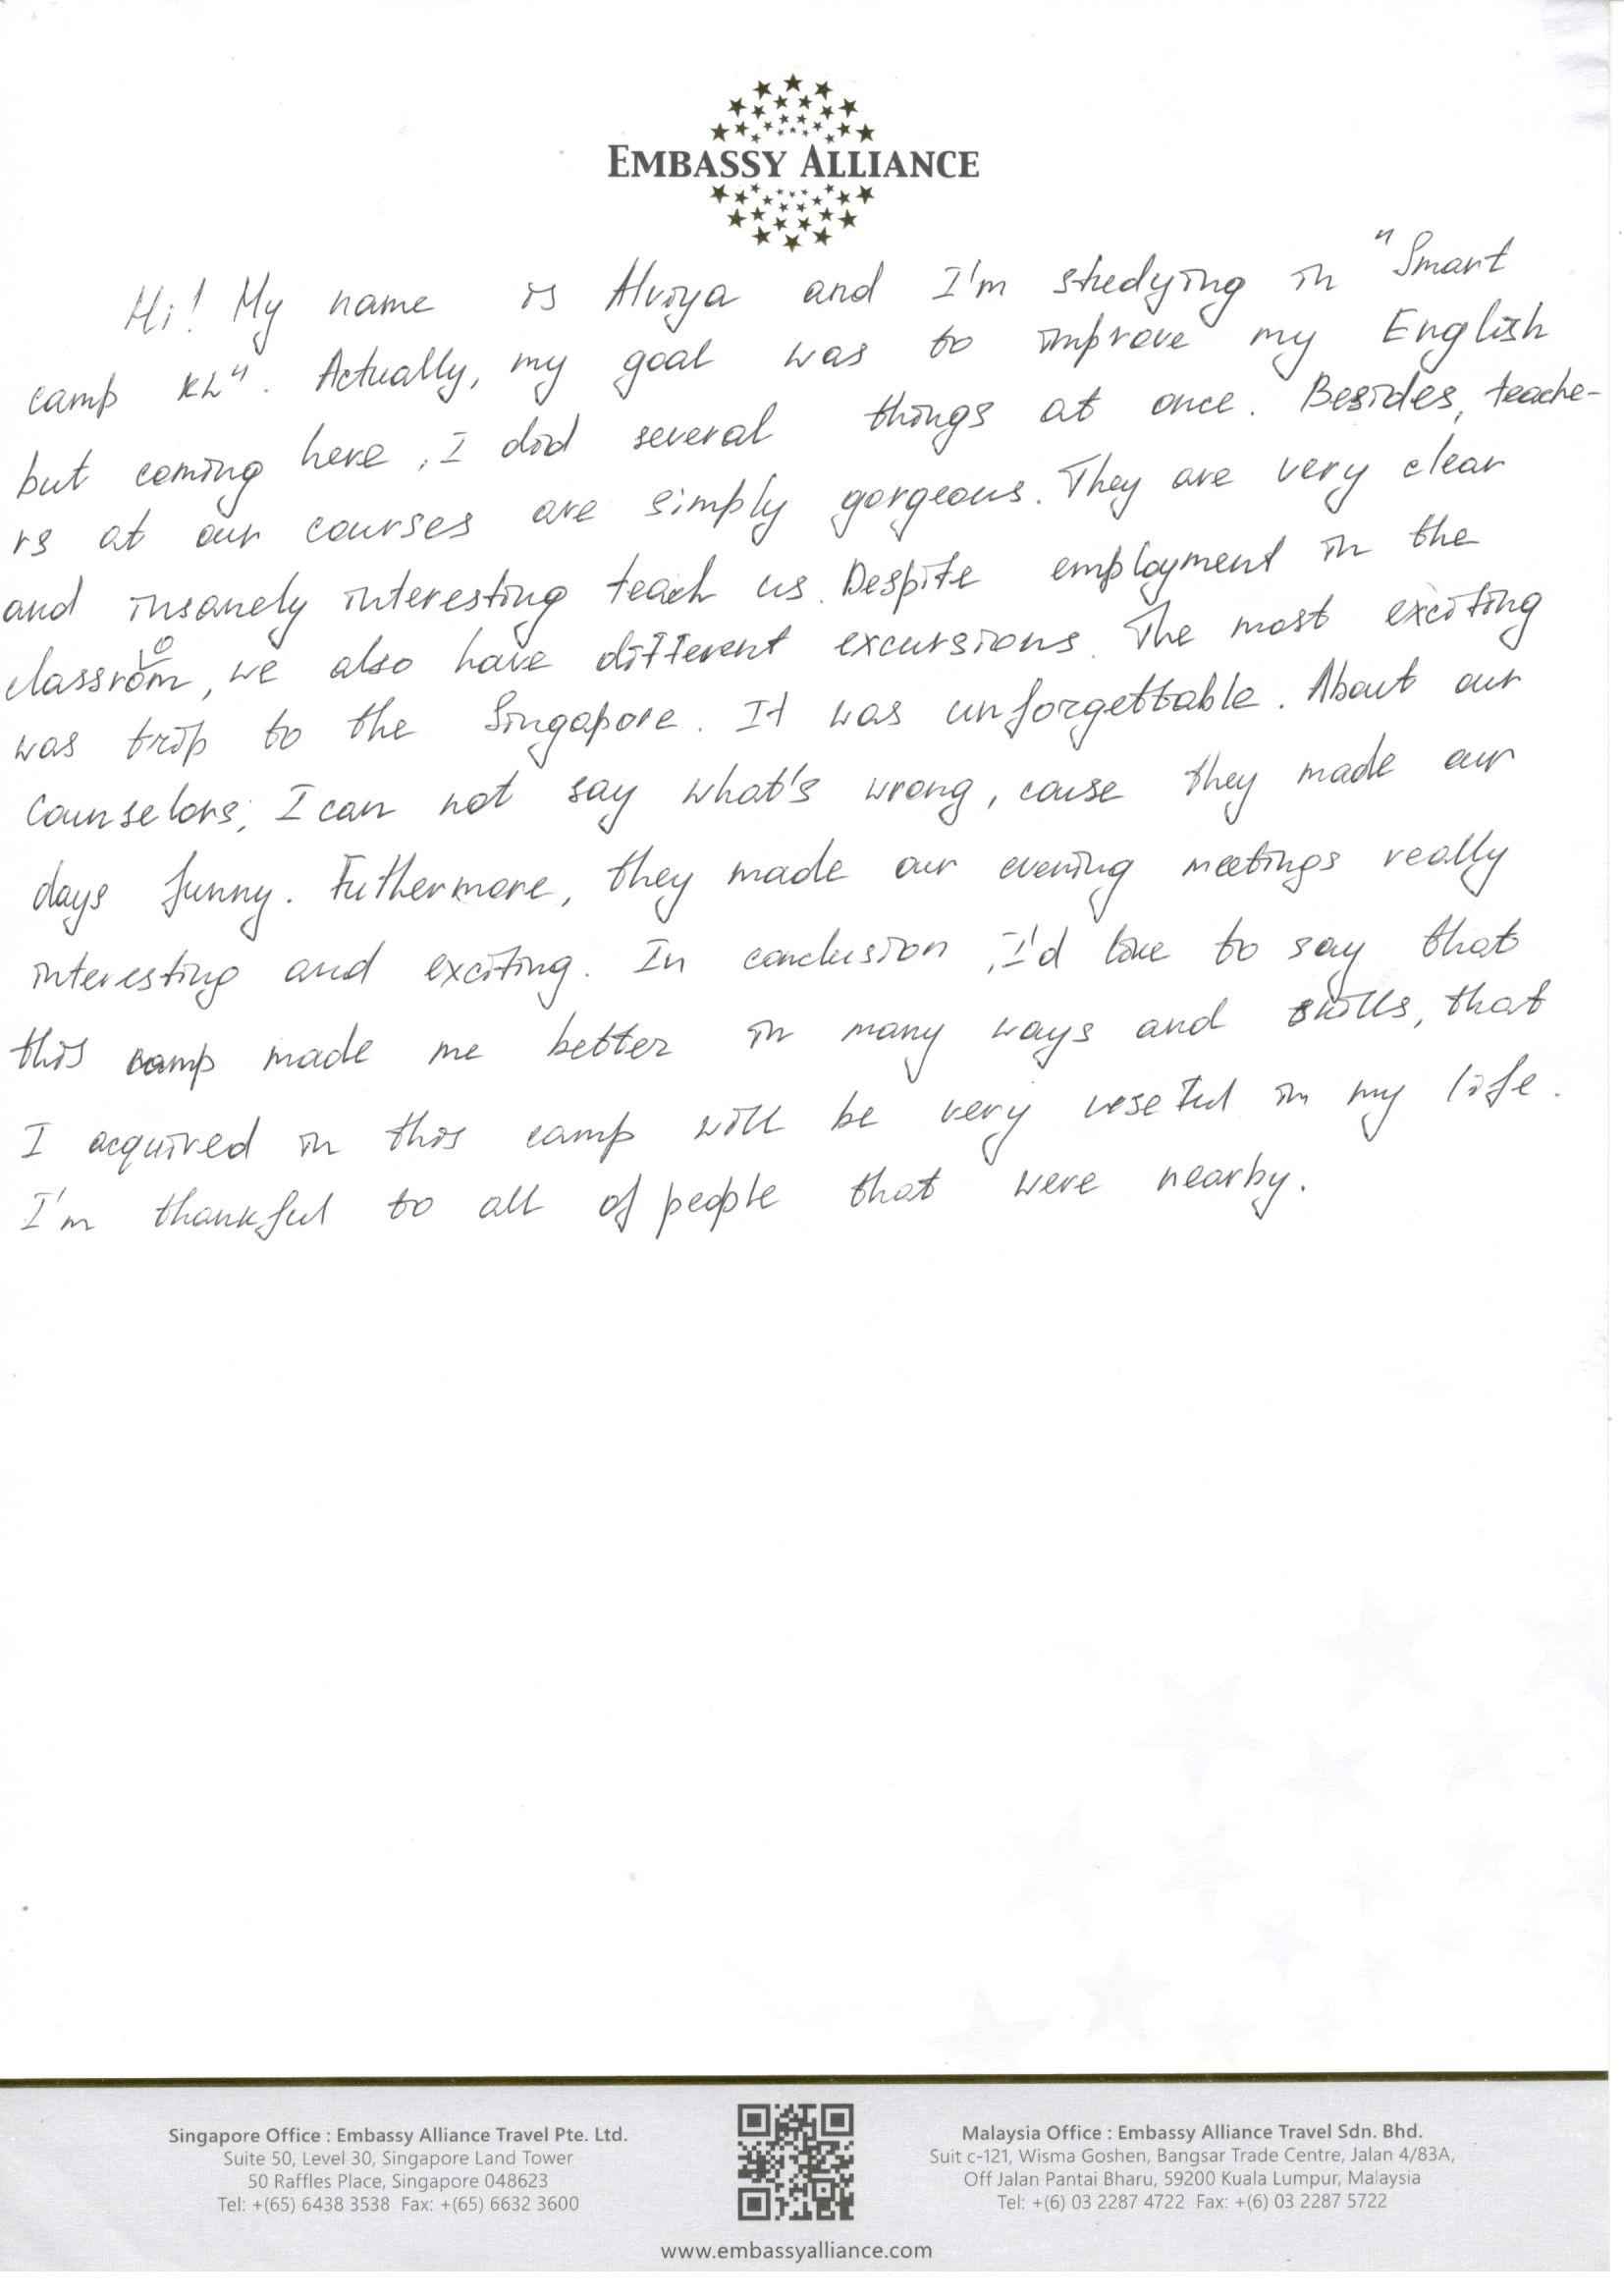 EMBASSY ALLIANCE
Hi! My name is Alviya and I'm studying in "Smart
camp KL". Actually, my goal was to improve my English
but coming here, I did several things at once. Besides, teache-
rs at our courses are simply gorgeous. They are very clear
and insanely interesting teach us. Despite employment in the
classroom, we also have different excursions. The most exciting
was trip to the Singapore. It was unforgettable. About our
counselors, I can not say what's wrong, cause they made our
days funny. Futhermore, they made our evening meetings really
interesting and exciting. In conclusion, I'd like to say that
this camp made me better in many ways and skills, that
I acquired in this camp will be very useful in my life.
I'm thankful to all of people that were nearby.
Singapore Office : Embassy Alliance Travel Pte. Ltd.
Suite 50, Level 30, Singapore Land Tower
50 Raffles Place, Singapore 048623
Tel: +(65) 6438 3538 Fax: +(65) 6632 3600
Malaysia Office : Embassy Alliance Travel Sdn. Bhd.
Suit c-121, Wisma Goshen, Bangsar Trade Centre, Jalan 4/83A,
Off Jalan Pantai Bharu, 59200 Kuala Lumpur, Malaysia
Tel: +(6) 03 2287 4722 Fax: +(6) 03 2287 5722
www.embassyalliance.com